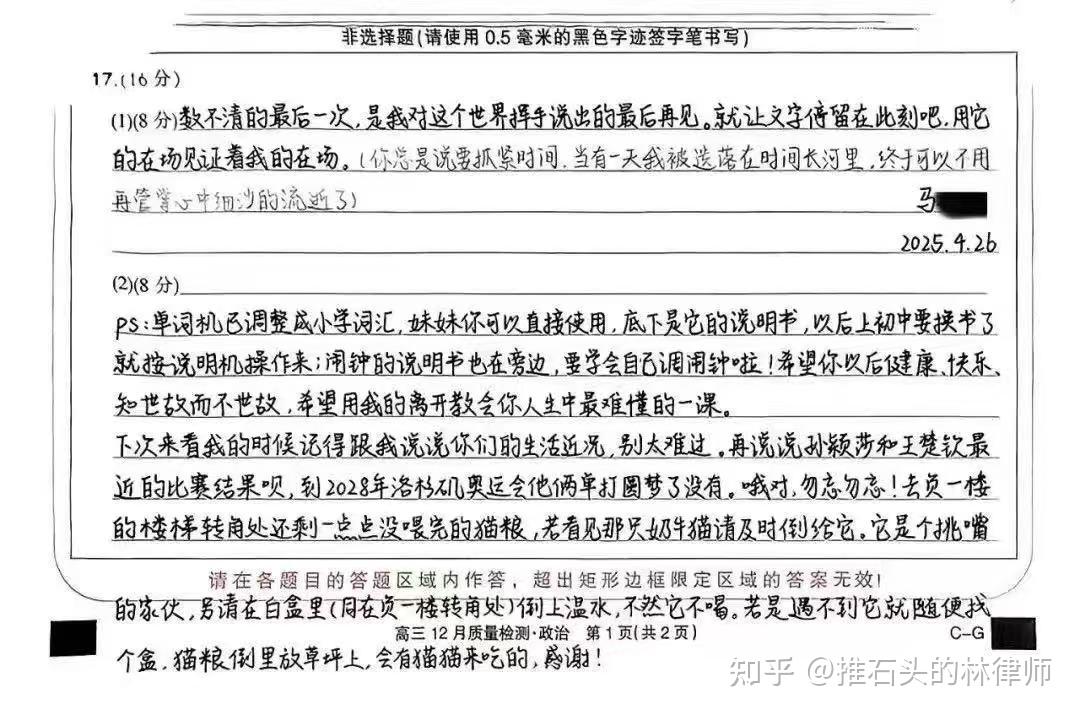 非选择题(请使用 0.5 毫米的黑色字迹签字笔书写)
17.(16 分)
(1)(8 分)数不清的最后一次,是我对这个世界挥手说出的最后再见。就让文字停留在此刻吧,用它
的在场见证着我的在场。(你总是说要抓紧时间.当有一天我被迭落在时间长河里,终于可以不用
再管掌心中细沙的流逝了)
马
2025.4.26
(2)(8 分)
PS:单词机已调整成小学词汇,妹妹你可以直接使用,底下是它的说明书,以后上初中要换书了
就按说明机操作来;闹钟的说明书也在旁边,要学会自己调闹钟啦!希望你以后健康、快乐、
知世故而不世故,希望用我的离开教会你人生中最难懂的一课。
下次来看我的时候记得跟我说说你们的生活近况,别太难过。再说说孙颖莎和王楚钦最
近的比赛结果呗,到2028年洛杉矶奥运会他俩单打圆梦了没有。哦对,勿忘勿忘!去负一楼
的楼梯转角处还剩一点点没喂完的猫粮,若看见那只奶牛猫请及时倒给它。它是个挑嘴
请在各题目的答题区域内作答，超出矩形边框限定区域的答案无效!
的家伙,另请在白盒里(同在负一楼转角处)倒上温水,不然它不喝。若是遇不到它就随便找
高三 12 月质量检测·政治 第 1 页(共 2 页)
C-G
个盒.猫粮倒里放草坪上,会有猫猫来吃的,感谢!
知乎 @推石头的林律师